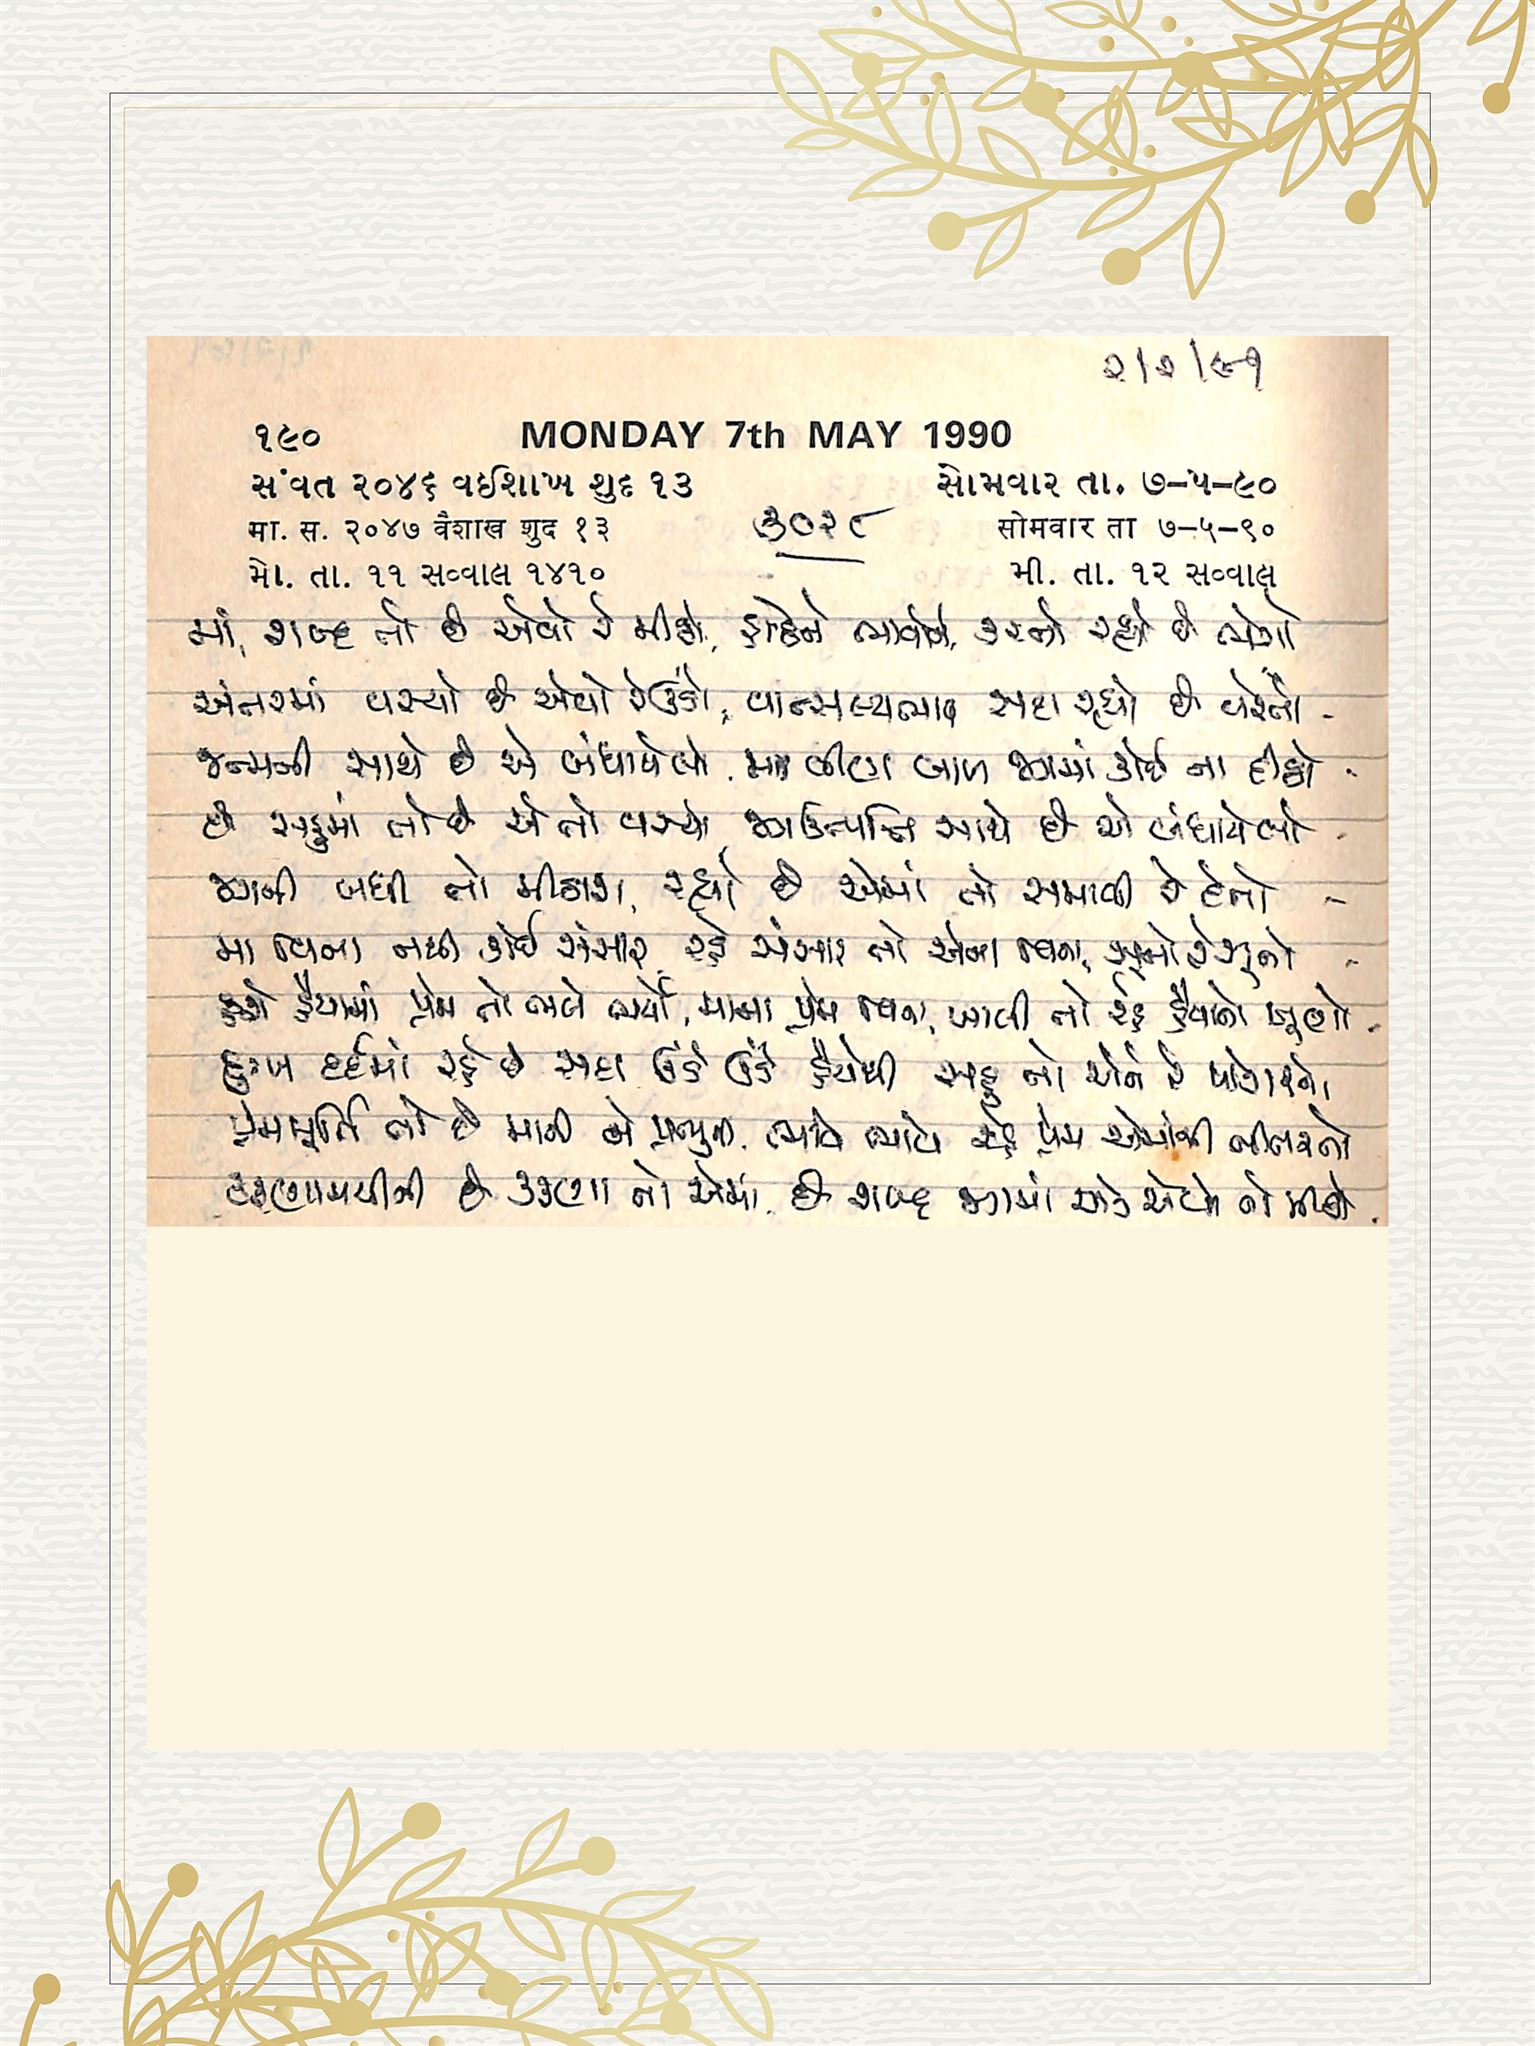 ૨/૨/૯૧
૧૯૦ MONDAY 7th MAY 1990
સંવત ૨૦૪૬ વઈશાખ શુદ ૧૩ સોમવાર તા. ૭-૫-૯૦
મા. સ. ૨૦૪૭ वैशाख शुद ૧૩ सोमवार ता ૭-૫-૯૦
મો. તા. ૧૧ સવ્વાલ ૧૪૧૦ મી. તા. ૧૨ સવ્વાલ
૩૦૨૮
માં, શબ્દ તો છે એવો રે મીઠો, કરતો રહ્યો છે ભેગો
અંતરમાં વસ્યો છે એવો રે ઉંડો, વાત્સલ્યભાવ સદા રહ્યો છે વહેતો -
જન્મની સાથે છે એ બંધાયેલો, મા વીણા બાળ જગમાં કોઈ ના દીઠો -
છે સહુમાં તો છે એ તો વસ્યો જગઉત્પત્તિ સાથે છે એ બંધાયેલો -
જગની બધી તો મીઠાશ, રહ્યો છે એમાં તો સમાવી રે દેતો -
મા વિના નથી કોઈ સંસાર, રહે સંસાર તો એના વિના, સૂનો રે સૂનો -
હશે હૈયામાં પ્રેમ તો ભલે ભર્યો, માના પ્રેમ વિના, ખાલી તો રહે હૈયાનો ખૂણો -
દુઃખ દર્દમાં રહે છે સદા ઉંડે ઉંડે હૈયેથી સહુ તો એને રે પોકારતો
પ્રેમમૂર્તિ તો છે માની પ્રભુની, ભાવે ભાવે રહે પ્રેમ એમાંથી નીતરતો
કરુણામયીની છે કરુણા તો એમાં, છે શબ્દ જગમાં એક એટલે તો મીઠો -